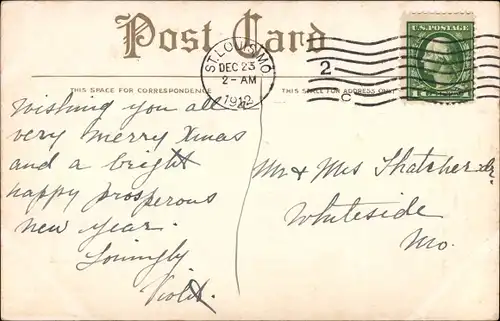 Post Card
ST. LOUIS, MO.
DEC 23
2-AM
1912
2
C
U.S. POSTAGE
THIS SPACE FOR CORRESPONDENCE
THIS SPACE FOR ADDRESS ONLY
Wishing you all a
very merry Xmas
and a bright
happy prosperous
new year.
Lovingly
Violet.
Mr & Mrs Thatcher Jr.
Whiteside
Mo.